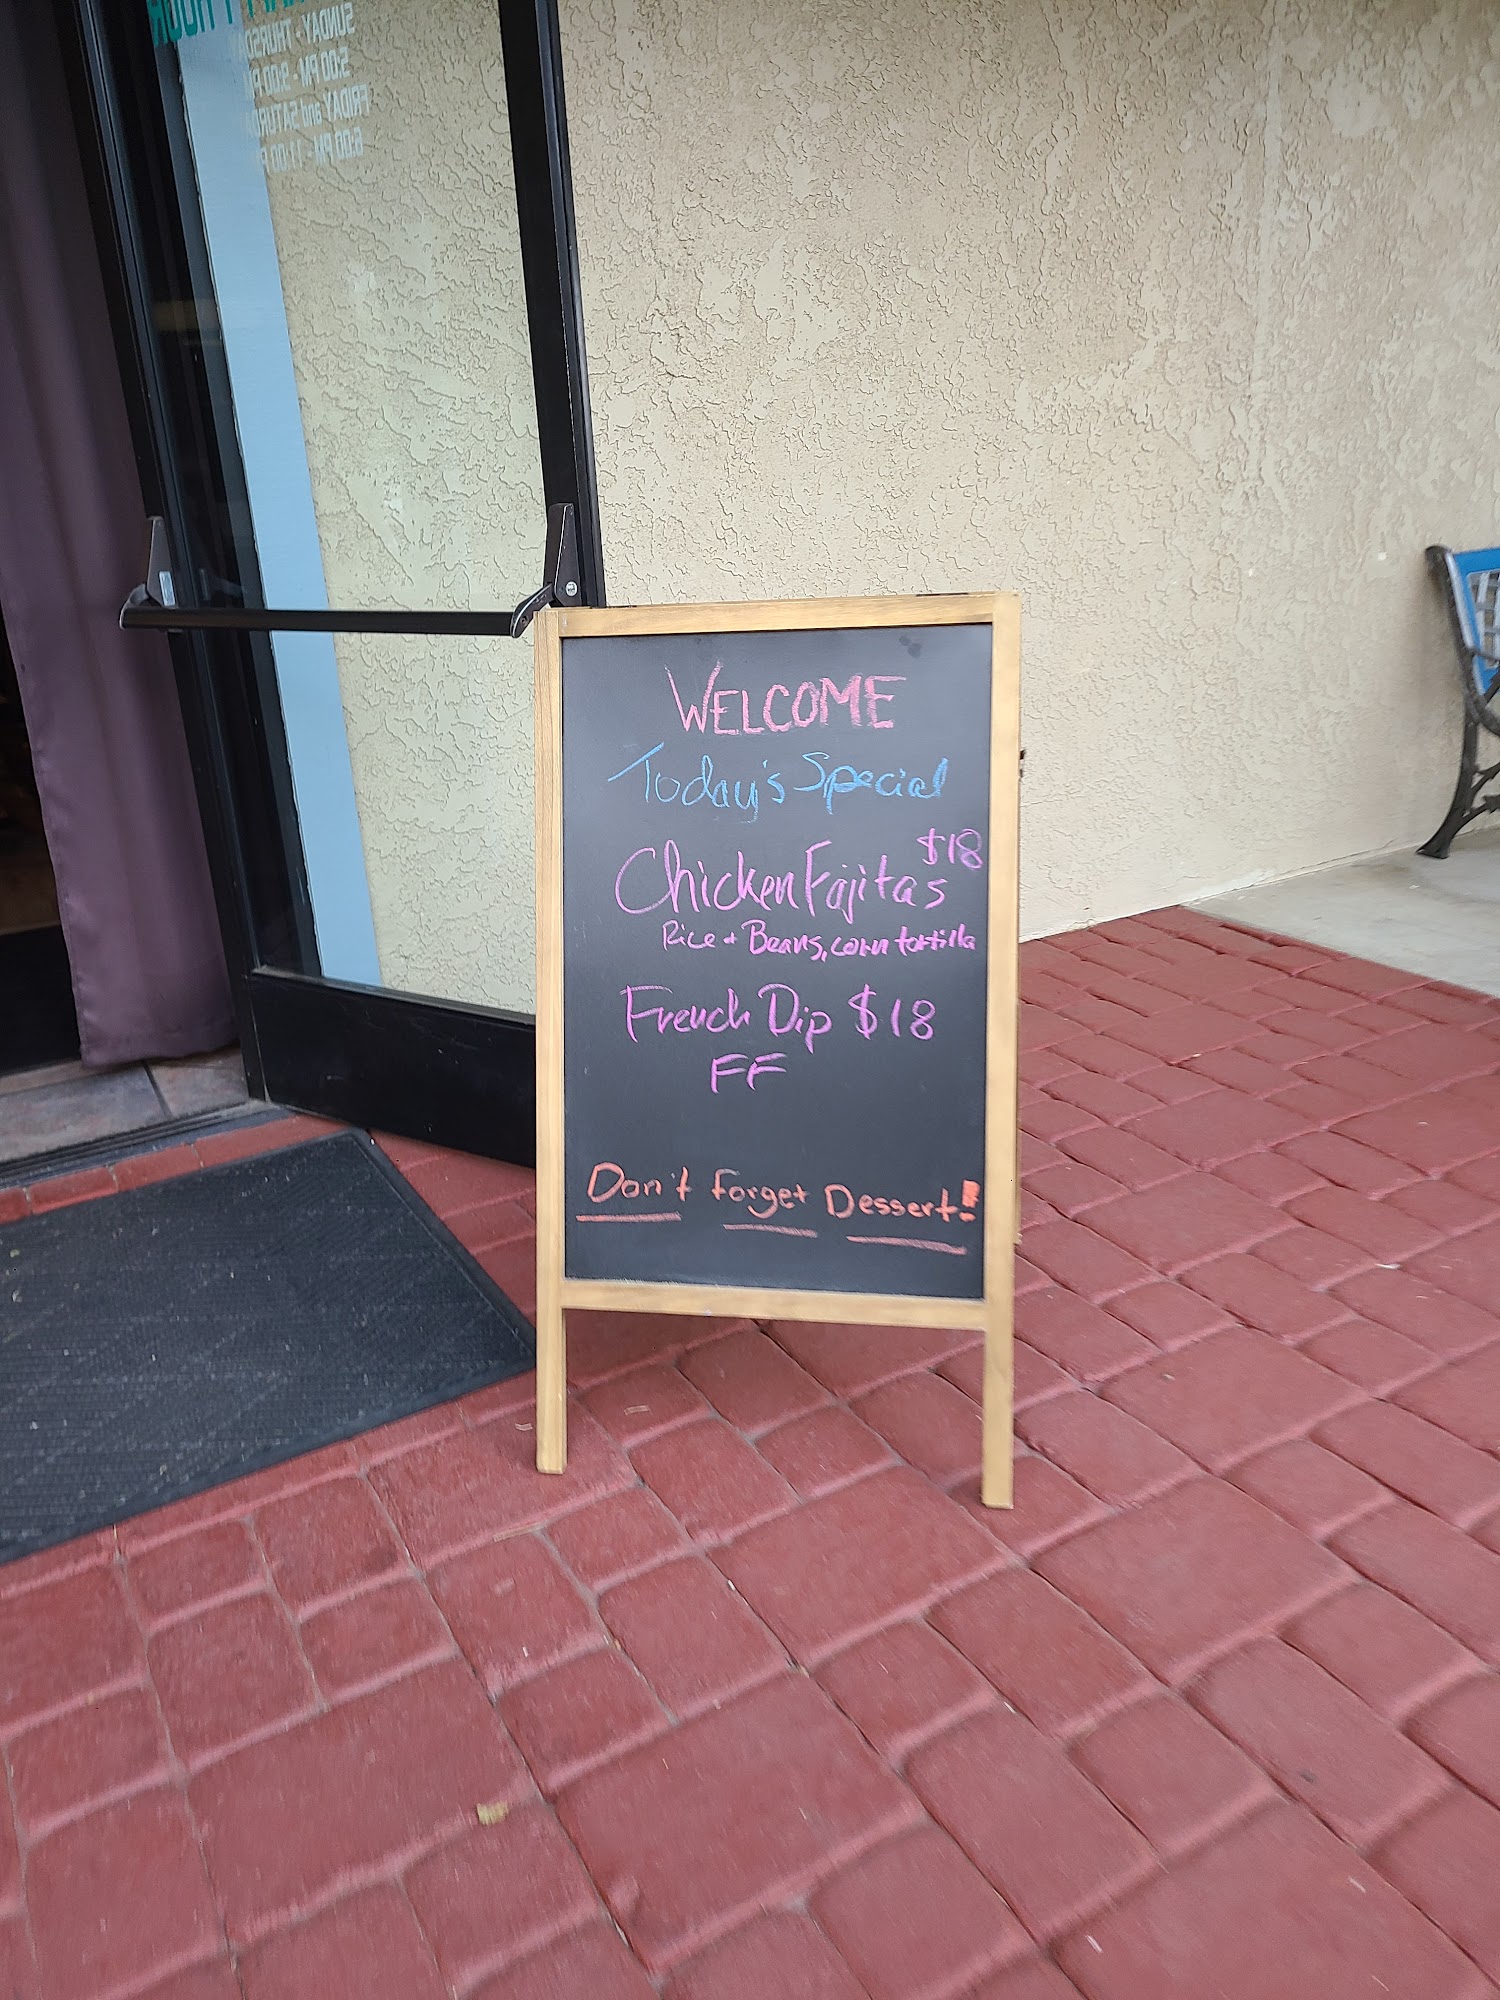 HOUR
SUNDAY - THURSDA
5:00 PM - 9:00 PM
FRIDAY and SATURDA
6:00 PM - 11:00 P
WELCOME
Today's Special
$18
Chicken Fajitas
Rice + Beans, corn tortilla
French Dip $18
FF
Don't forget Dessert!!